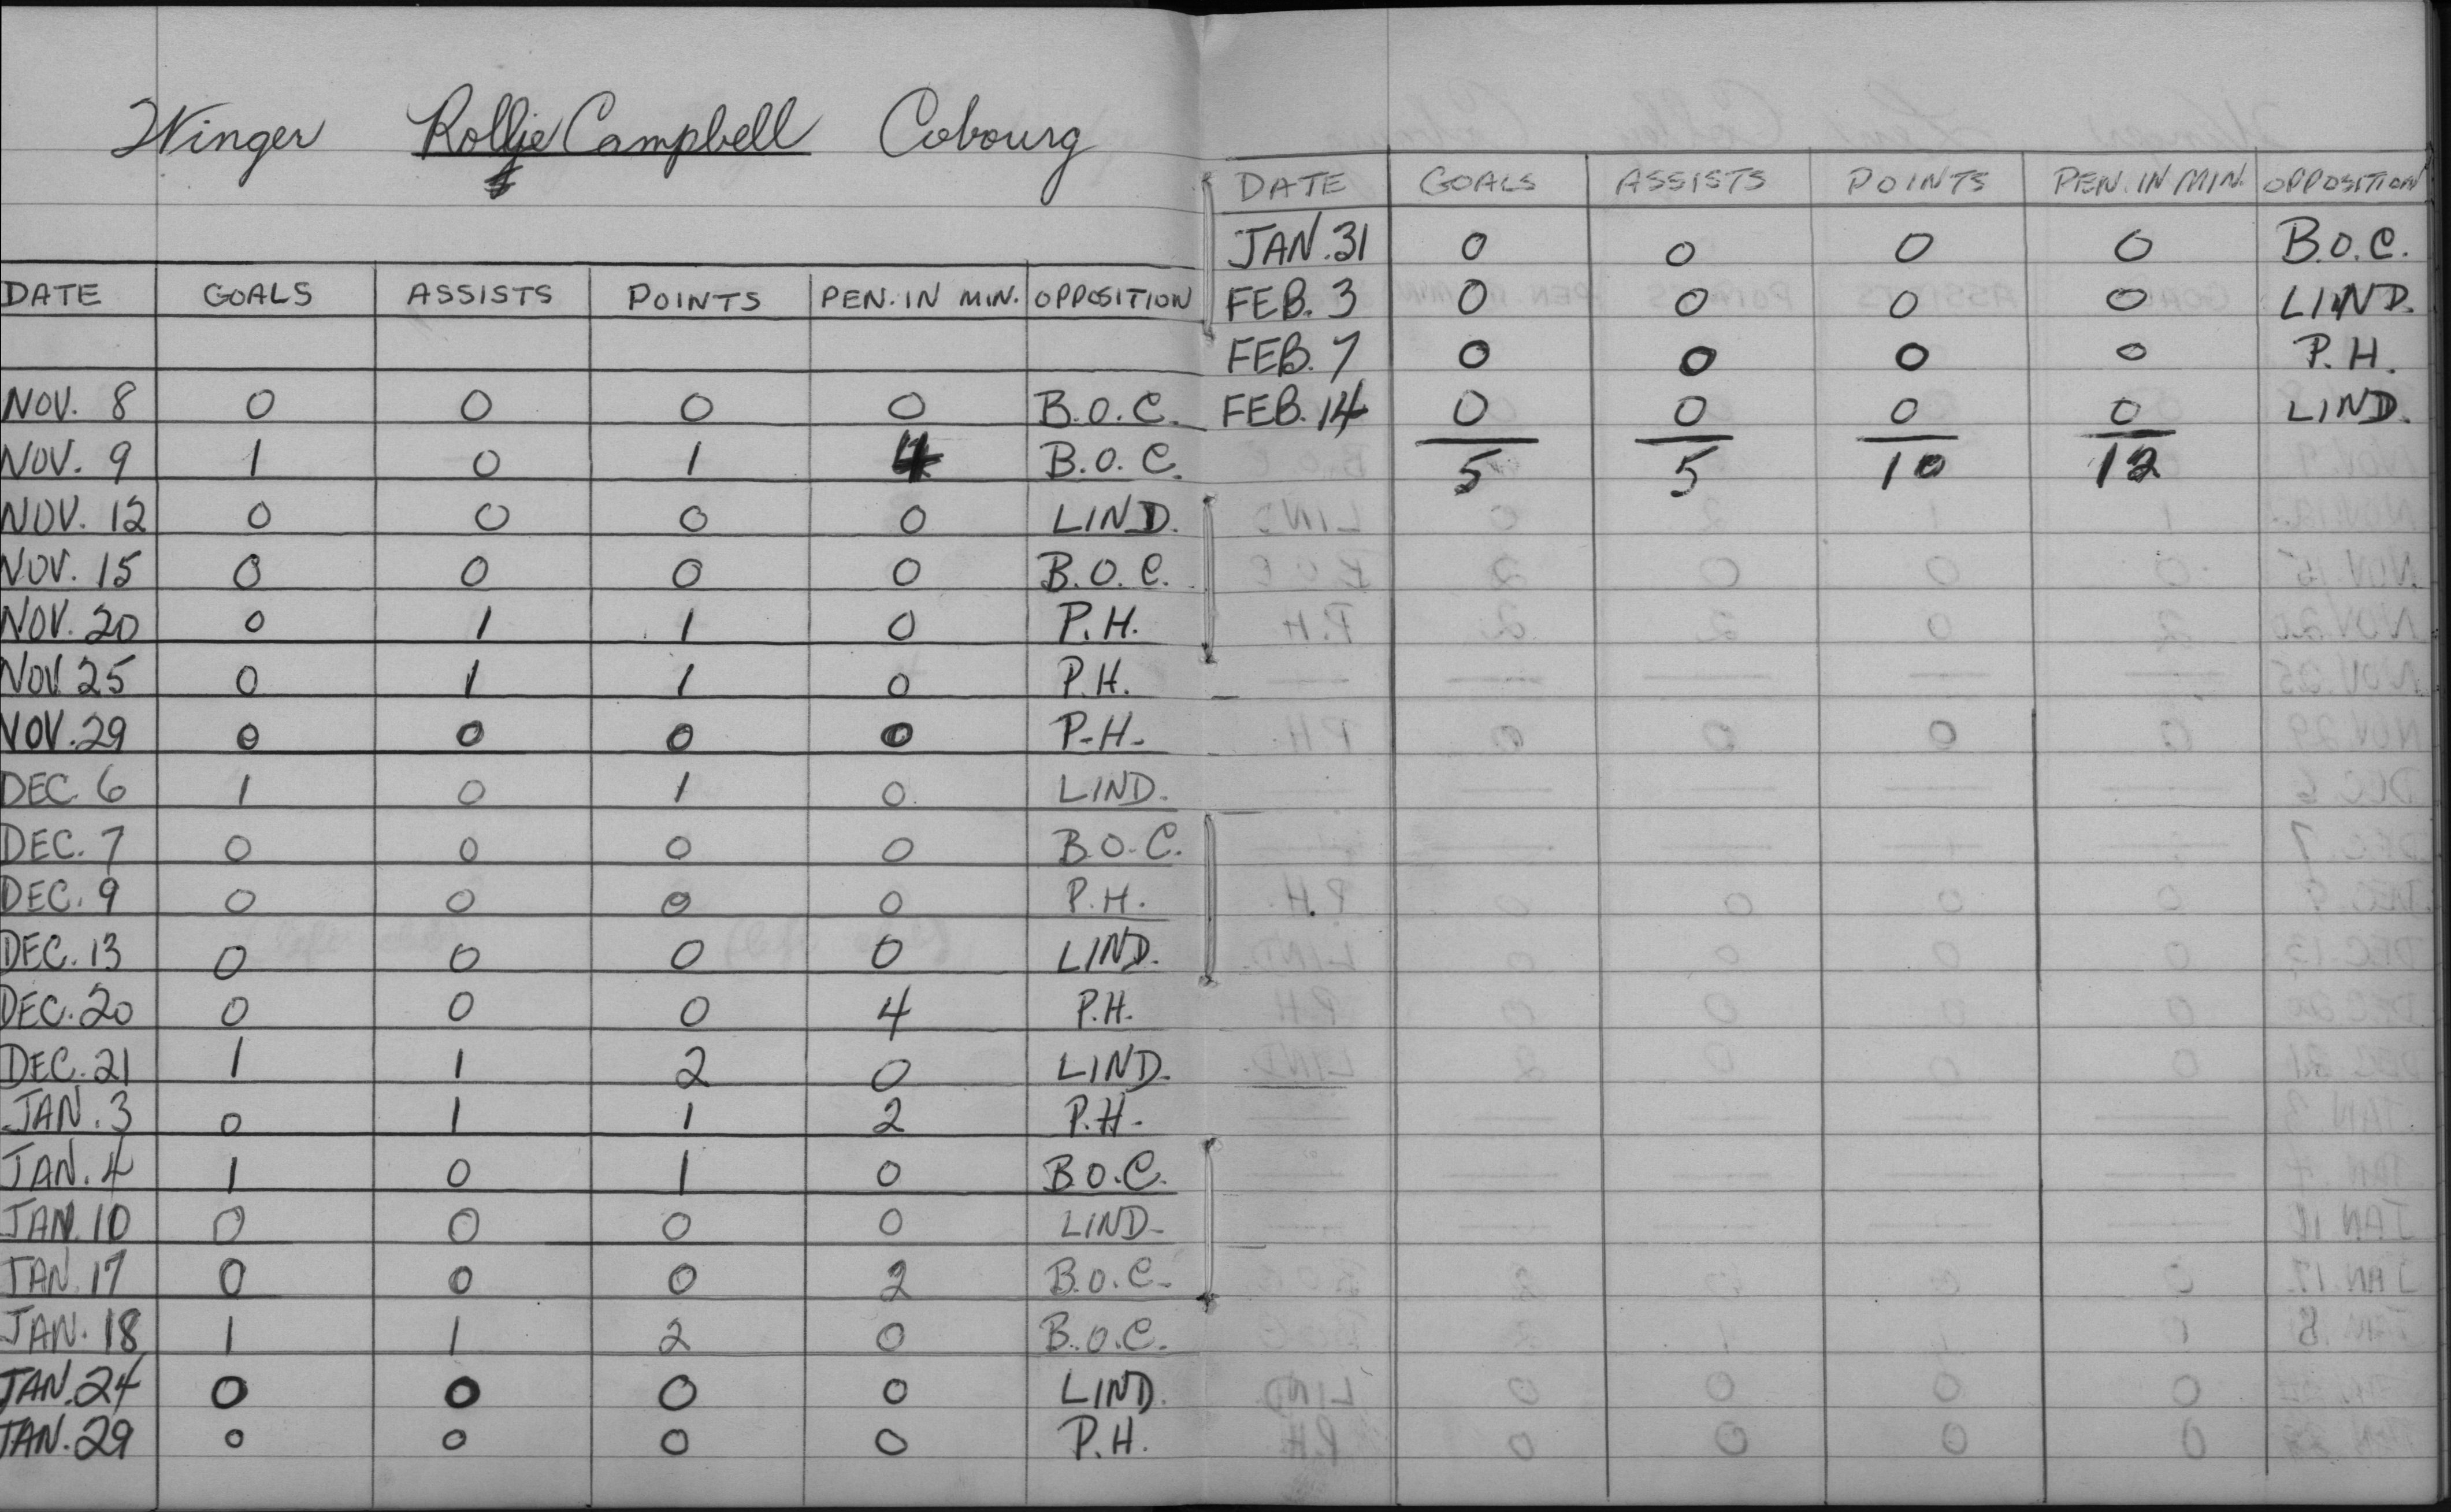 Winger Rollie Campbell Cobourg
DATE GOALS ASSISTS POINTS PEN. IN MIN. OPPOSITION
NOV. 8 0 0 0 0 B.O.C.
NOV. 9 1 0 1 4 B.O.C.
NOV. 12 0 0 0 0 LIND.
NOV. 15 0 0 0 0 B.O.C.
NOV. 20 0 1 1 0 P.H.
NOV. 25 0 1 1 0 P.H.
NOV. 29 0 0 0 0 P.H.
DEC. 6 1 0 1 0 LIND.
DEC. 7 0 0 0 0 B.O.C.
DEC. 9 0 0 0 0 P.H.
DEC. 13 0 0 0 0 LIND.
DEC. 20 0 0 0 4 P.H.
DEC. 21 1 1 2 0 LIND.
JAN. 3 0 1 1 2 P.H.
JAN. 4 1 0 1 0 B.O.C.
JAN. 10 0 0 0 0 LIND.
JAN. 17 0 0 0 2 B.O.C.
JAN. 18 1 1 2 0 B.O.C.
JAN. 24 0 0 0 0 LIND.
JAN. 29 0 0 0 0 P.H.
DATE GOALS ASSISTS POINTS PEN. IN MIN. OPPOSITION
JAN. 31 0 0 0 0 B.O.C.
FEB. 3 0 0 0 0 LIND.
FEB. 7 0 0 0 0 P.H.
FEB. 14 0 0 0 0 LIND.
5 5 10 12